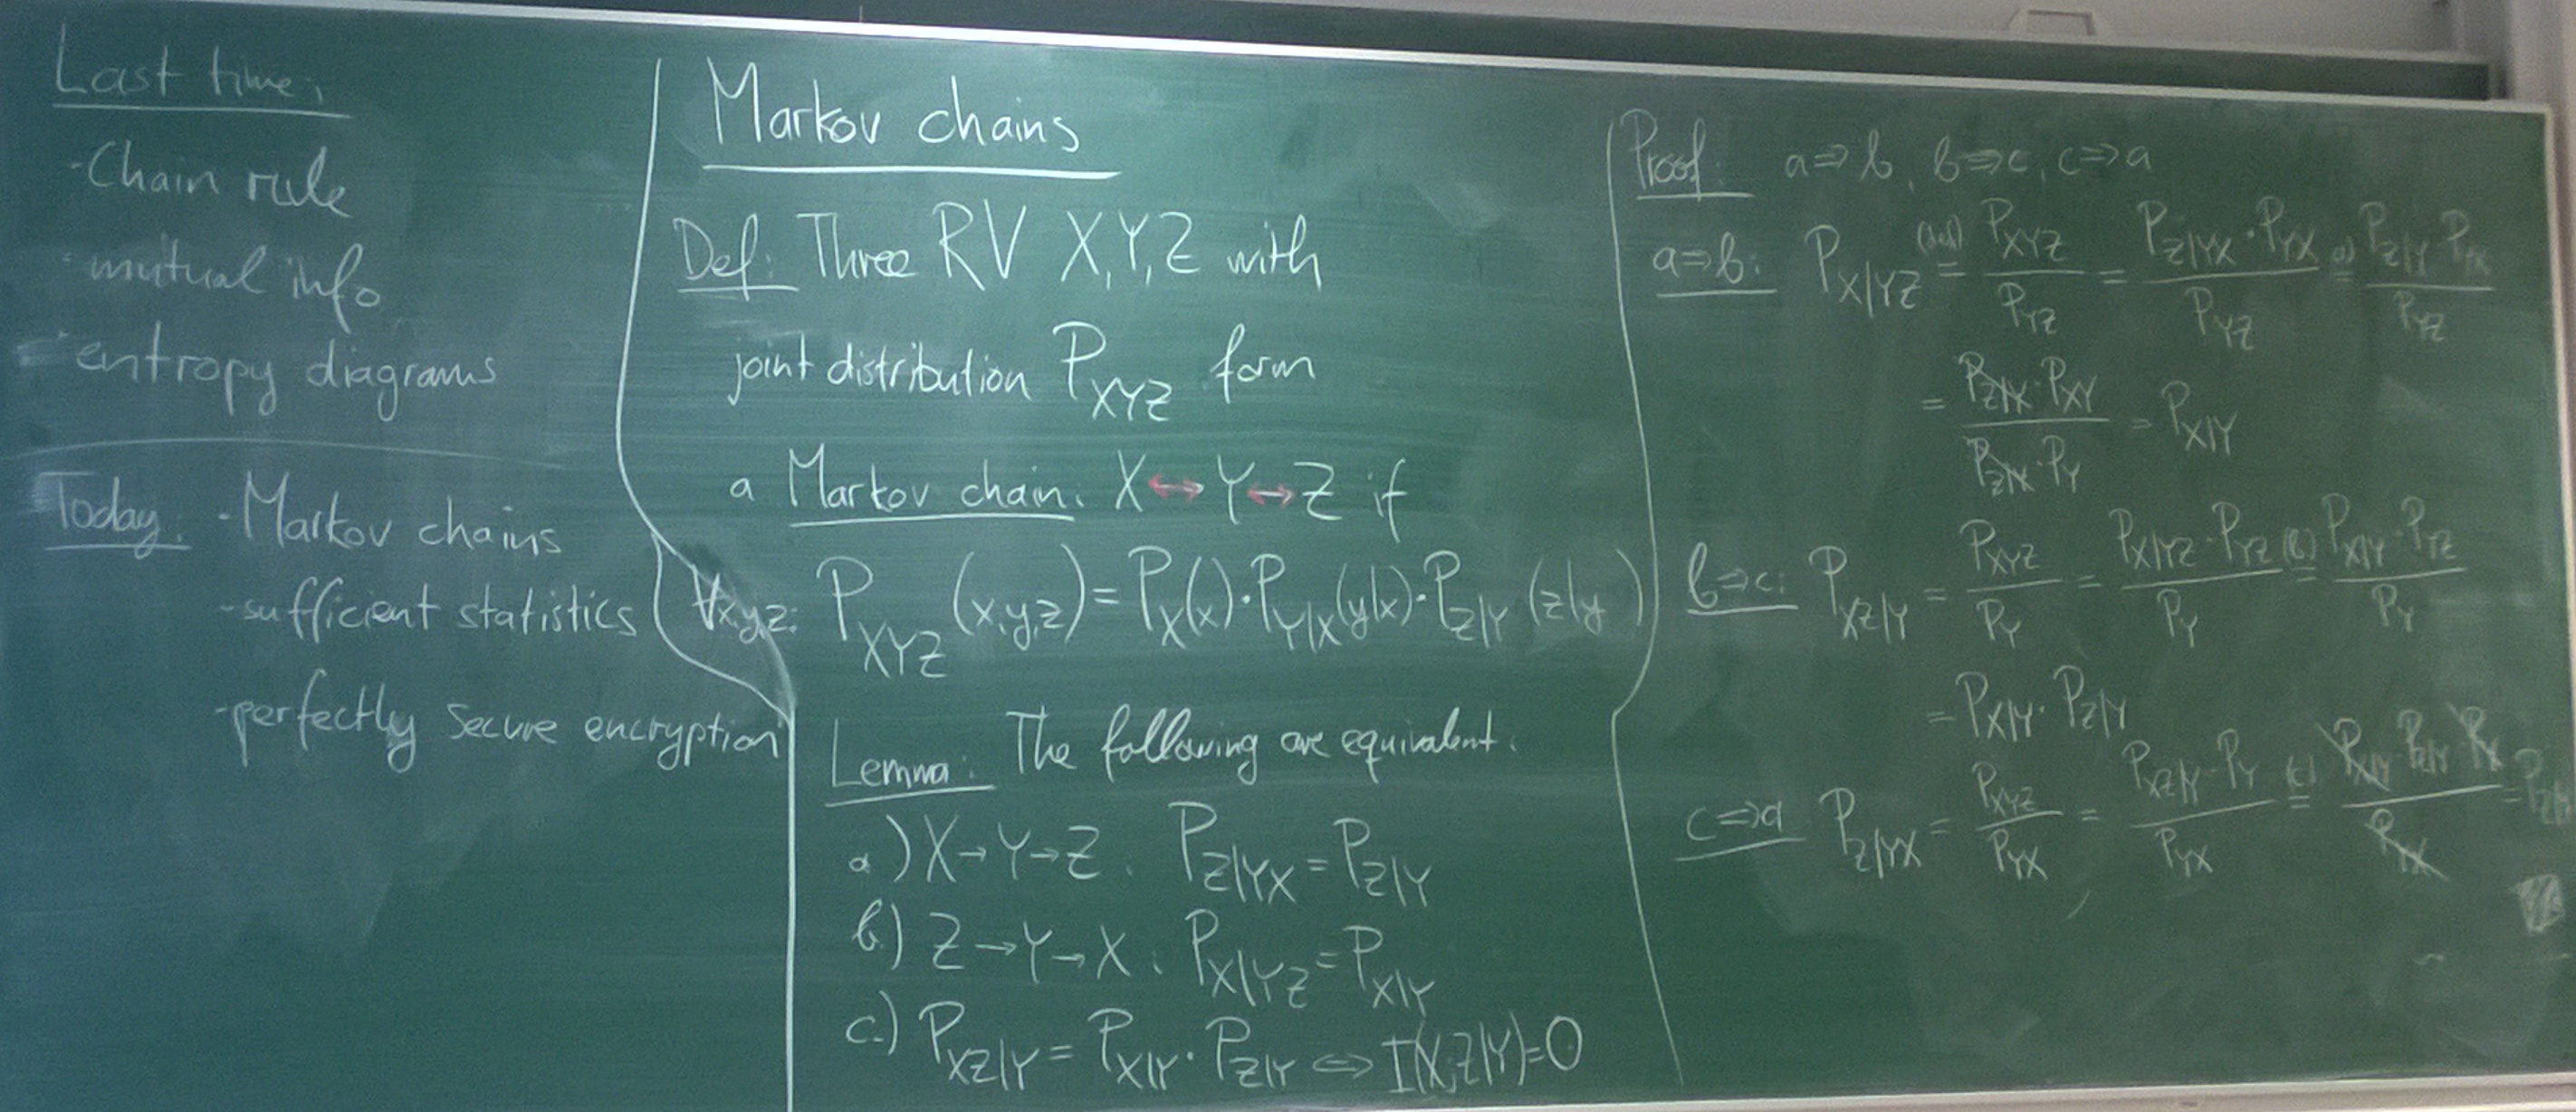 Last time:
- Chain rule
- mutual info
- entropy diagrams
Today: - Markov chains
- sufficient statistics
- perfectly secure encryption
Markov chains
Def: Three RV X, Y, Z with
joint distribution P_XYZ form
a Markov chain: X ↔ Y ↔ Z if
∀x,y,z: P_XYZ (x,y,z) = P_X(x) · P_Y|X(y|x) · P_Z|Y (z|y)
Lemma: The following are equivalent:
a.) X → Y → Z : P_Z|YX = P_Z|Y
b.) Z → Y → X : P_X|YZ = P_X|Y
c.) P_XZ|Y = P_X|Y · P_Z|Y ⇔ I(X;Z|Y)=0
Proof: a ⇒ b, b ⇒ c, c ⇒ a
a ⇒ b: P_X|YZ (def) = P_XYZ / P_YZ = P_Z|YX · P_YX / P_YZ (a) = P_Z|Y · P_YX / P_YZ
= P_Z|Y · P_XY / P_Z|Y · P_Y = P_X|Y
b ⇒ c: P_XZ|Y = P_XYZ / P_Y = P_X|YZ · P_YZ / P_Y (b) = P_X|Y · P_YZ / P_Y
= P_X|Y · P_Z|Y
c ⇒ a P_Z|YX = P_XYZ / P_YX = P_XZ|Y · P_Y / P_YX (c) = P_X|Y · P_Z|Y · / P_YX = P_Z|Y